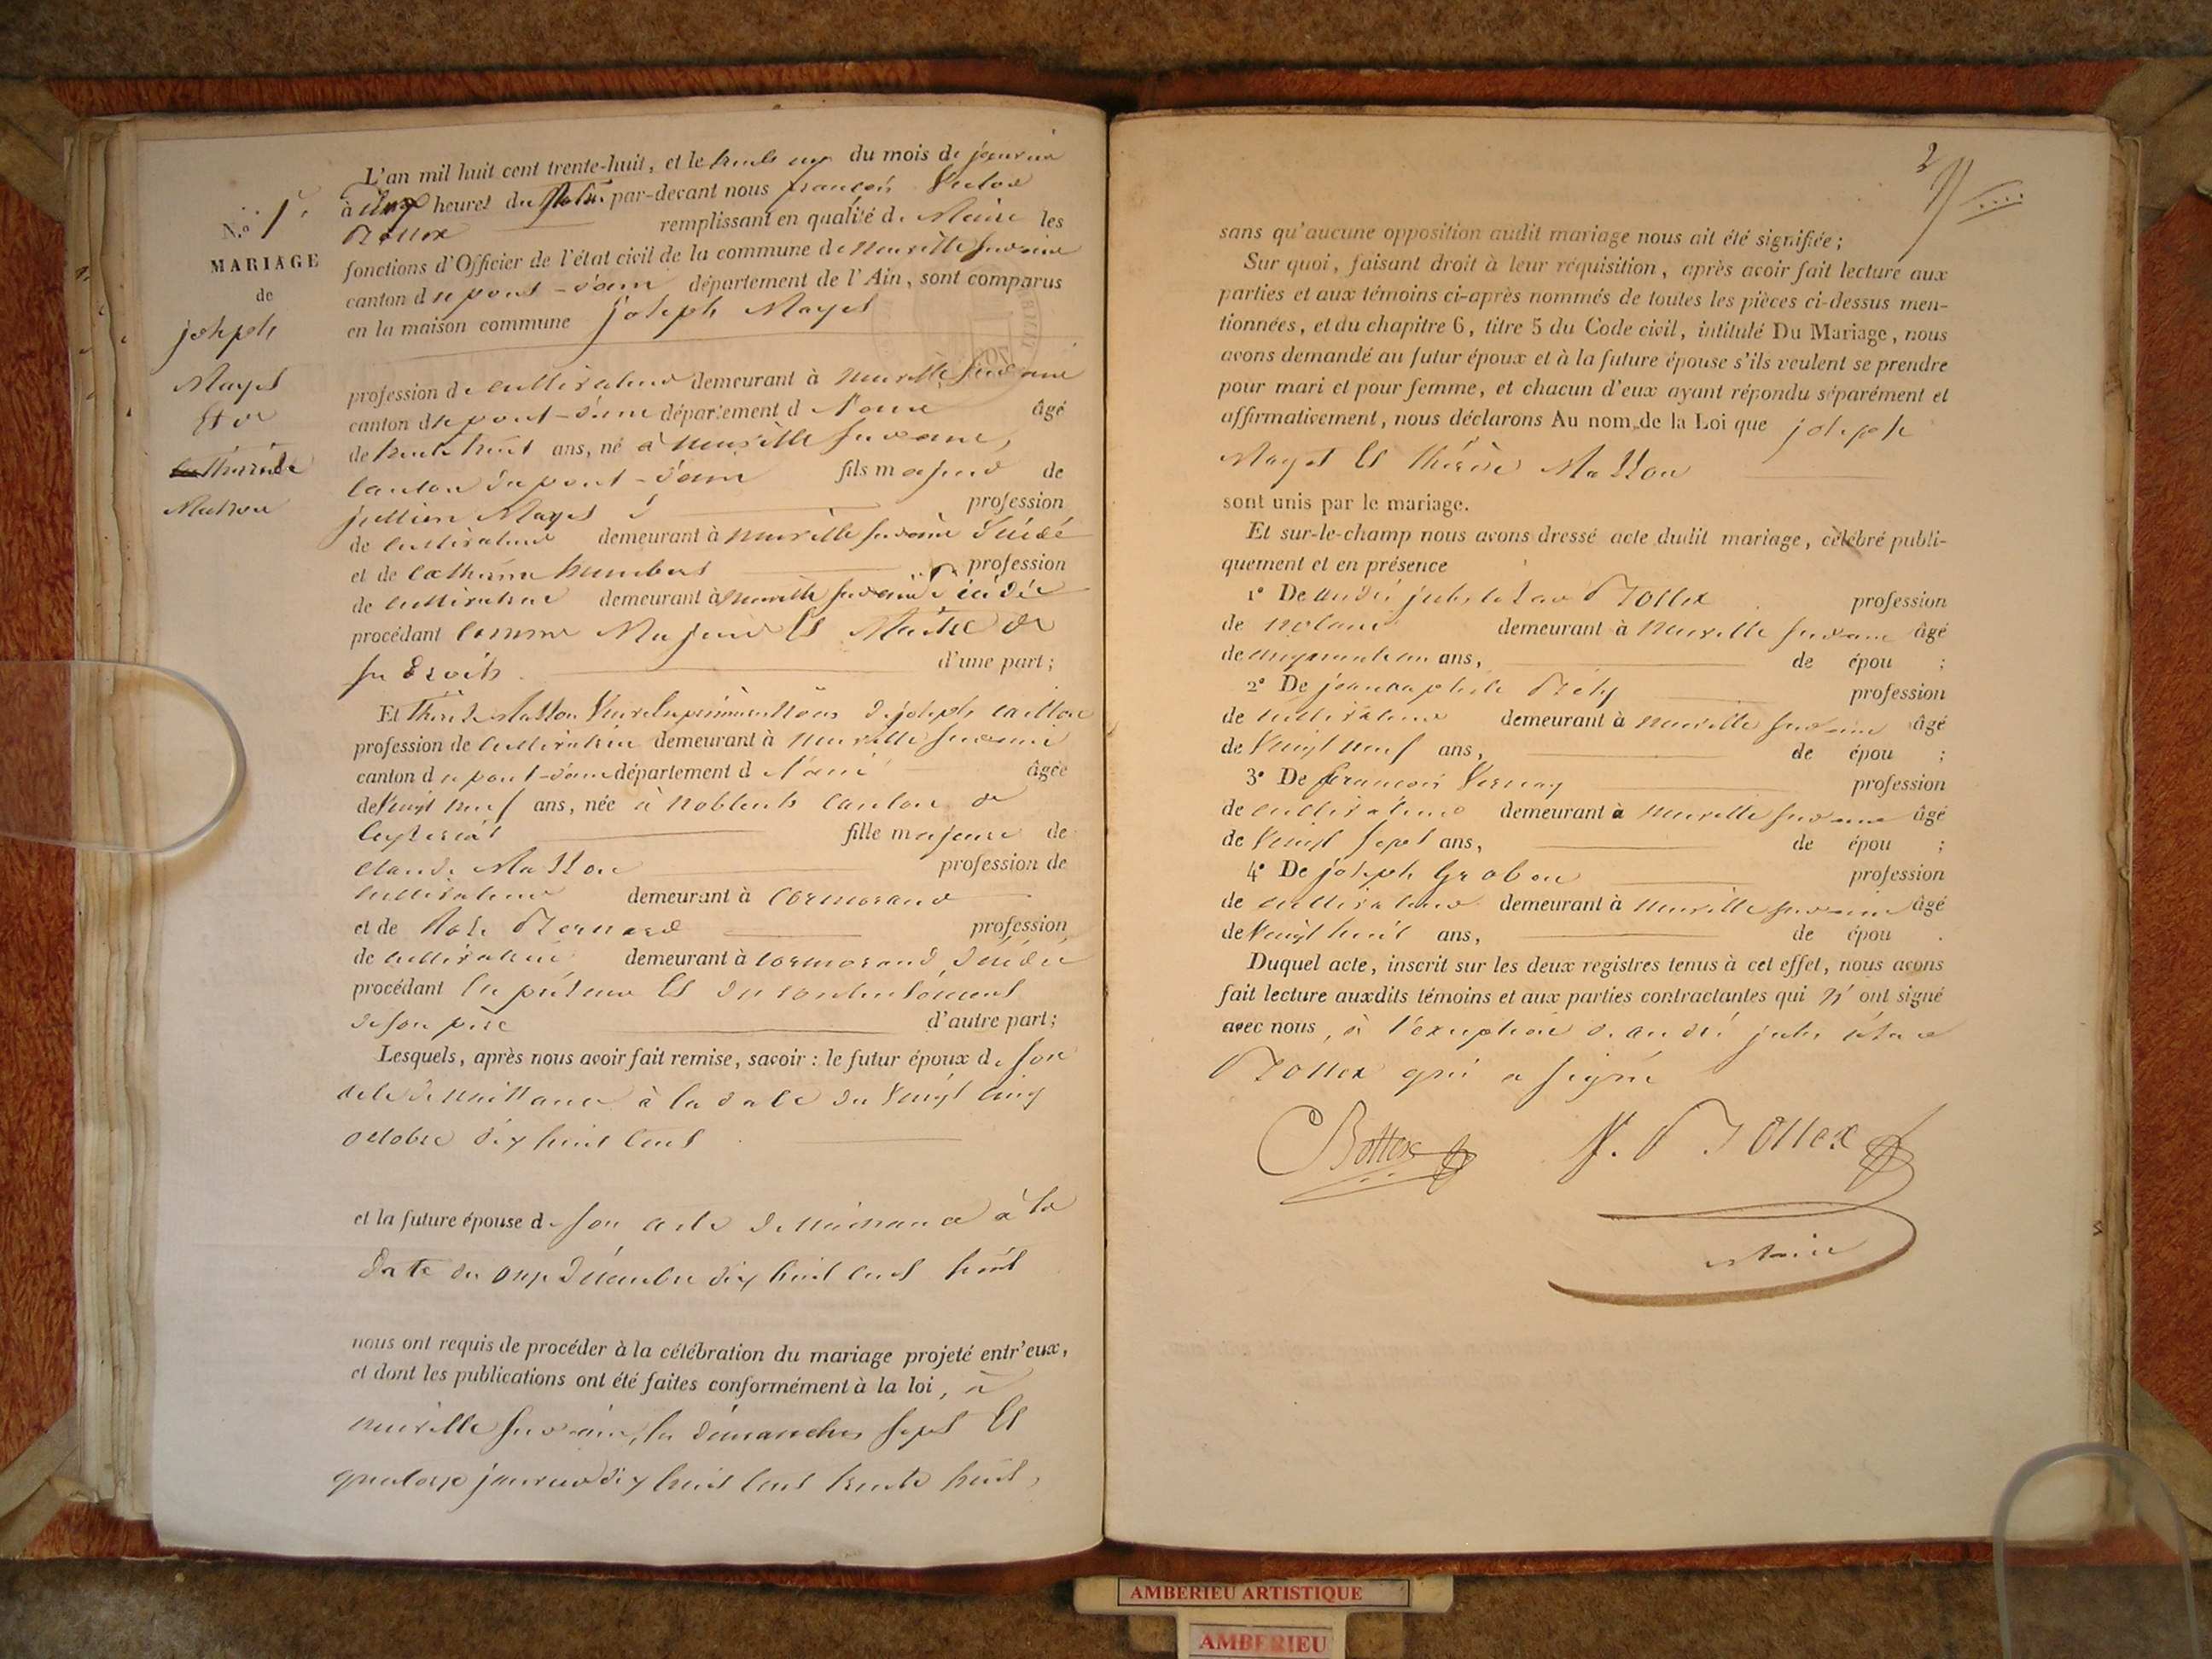 L'an mil huit cent trente-huit, et le trente un du mois de janvier
à cinq heures du par-devant nous françois victor
Bottex remplissant en qualité de Maire les
fonctions d'Officier de l'état civil de la commune de neuville sur ain
canton de pont-d'ain département de l'Ain, sont comparus
en la maison commune joseph Mayet
N.º 1er
MARIAGE
de
joseph
Mayet
Et de
thérèse
Masson
profession de cultivateur demeurant à neuville sur ain
canton de pont-d'ain département de l'ain âgé
de trente huit ans, né à neuville sur ain,
canton du pont-d'ain fils majeur de
jullien Mayet profession
de cultivateur demeurant à neuville sur ain décédé
et de catherine humbert profession
de cultivatrice demeurant à neuville sur ain décédée
procédant comme Majeur et Maitre de
ses droits. d'une part;
Et thérèse Masson veuve en premières nôces de joseph caillon
profession de cultivatrice demeurant à neuville sur ain
canton de pont-d'ain département de l'ain âgée
de vingt neuf ans, née à noblens canton de
ceyzeriat fille majeure de
claude Masson profession de
cultivateur demeurant à cormorand
et de Rose Bernard profession
de cultivatrice demeurant à cormorand décédée
procédant en présence et du consentement
de son père d'autre part;
Lesquels, après nous avoir fait remise, savoir : le futur époux de son
acte de naissance à la date du vingt cinq
octobre dix huit cent
et la future épouse de son acte de naissance à la
date du onze décembre dix huit cent huit
nous ont requis de procéder à la célébration du mariage projeté entr'eux,
et dont les publications ont été faites conformément à la loi, à
neuville sur ain, les dimanches sept et
quatorze janvier dix huit cent trente huit,
2
sans qu'aucune opposition audit mariage nous ait été signifiée;
Sur quoi, faisant droit à leur réquisition, après avoir fait lecture aux
parties et aux témoins ci-après nommés de toutes les pièces ci-dessus men-
tionnées, et du chapitre 6, titre 5 du Code civil, intitulé Du Mariage, nous
avons demandé au futur époux et à la future épouse s'ils veulent se prendre
pour mari et pour femme, et chacun d'eux ayant répondu séparément et
affirmativement, nous déclarons Au nom de la Loi que joseph
Mayet et thérèse Masson
sont unis par le mariage.
Et sur-le-champ nous avons dressé acte dudit mariage, célébré publi-
quement et en présence
1º De andré jules Bottex profession
de notaire demeurant à neuville sur ain âgé
de cinquante un ans, de épou ;
2º De jean baptiste Réty profession
de cultivateur demeurant à neuville sur ain âgé
de vingt neuf ans, de épou ;
3º De françois Vernay profession
de cultivateur demeurant à neuville sur ain âgé
de vingt sept ans, de épou ;
4º De joseph Grobon profession
de cultivateur demeurant à neuville sur ain âgé
de vingt huit ans, de épou .
Duquel acte, inscrit sur les deux registres tenus à cet effet, nous avons
fait lecture auxdits témoins et aux parties contractantes qui n' ont signé
avec nous, à l'exception d'andré jules
Bottex qui a signé
Bottex V. Bottex
Maire
AMBERIEU ARTISTIQUE
AMBERIEU